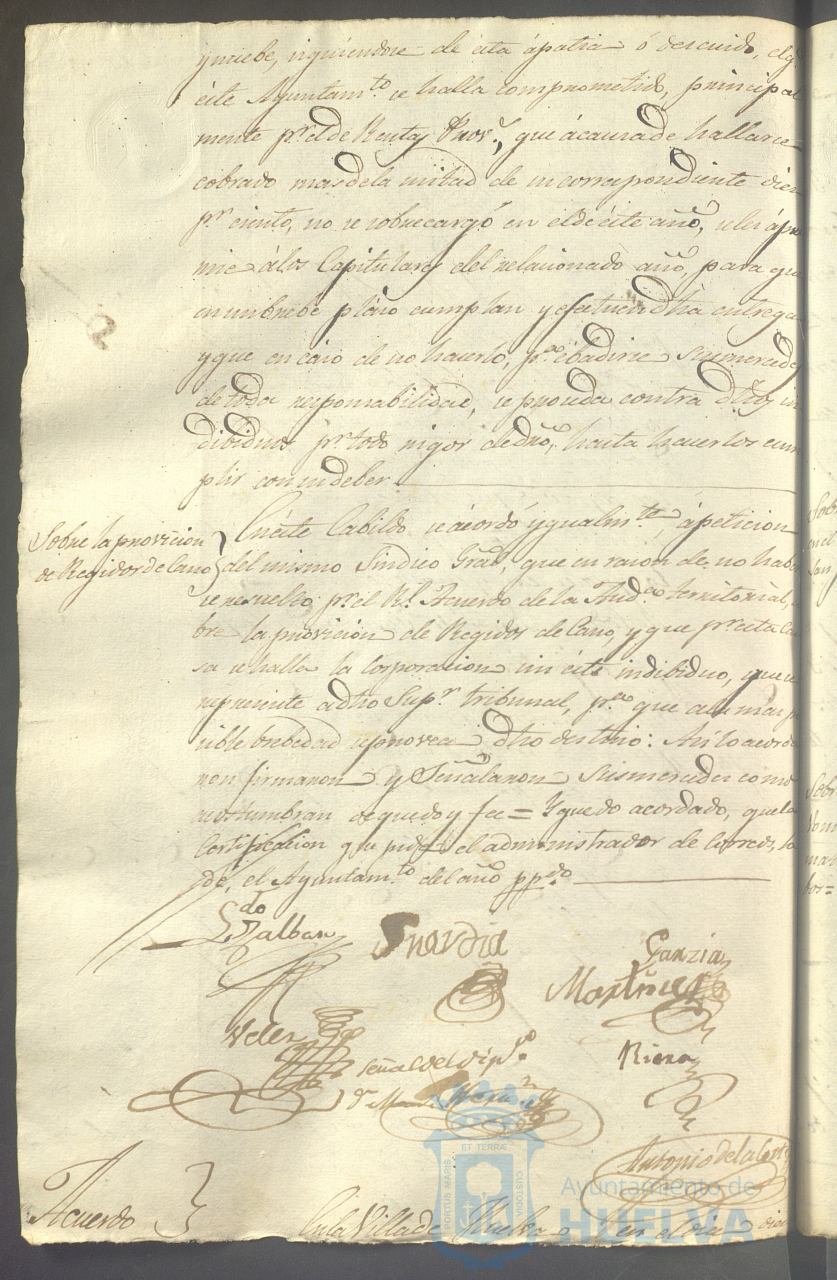 y puebe, siguiendose de esta ápatia ó descuido, el q.
éste Ayuntam.to se halla comprometido, principal
mente p.r el de Rentas Prov.s, que á causa de hallarse
cobrado mas de la mitad de su correspondiente diez
p.r ciento, no se sobrecargó en el de éste año, se les ápre
mie á los Capitulares del relacionado año, para que
en un brebe plázo cumplan y efectuen dha entrega
y que en caso de no hacerlo, p.a ebadirse Sus mercedes
de toda responsabilidad, se proceda contra dhos in
dibiduos p.r todo rigor de dro, hasta hacerlos cum
plir con su deber.
Sobre la provicion
de Regidor de Cano
En éste Cabildo se ácordó ygualm.te, á peticion
del mismo Sindico Gral, que en razon de no haber
se resuelto p.r el R.l Acuerdo de la Aud.a territorial, 
bre la provicion de Regidor de Cano, y que p.r esta cau
sa se halla la corporacion sin éste indibiduo, que se
represente á dho Sup.r tribunal, p.a que á la mas po
sible brebedad se provea dho destino: Asi lo acorda
ron firmaron y Señalaron Sus mercedes como
acostumbran de que doy fee = Y quedo acordado, que la
Certificacion que pide el administrador de Correos, la
dé, el Ayuntam.to del año pp.do
L.do Zalbar
Garzia
Martinez
Velez
Señal del Dip.do
Riera
Antonio de la Corte
Acuerdo
En la Villa de Huelva
ET TERRÆ
PORTUS MARIS
CUSTODIA
Ayuntamiento de
HUELVA